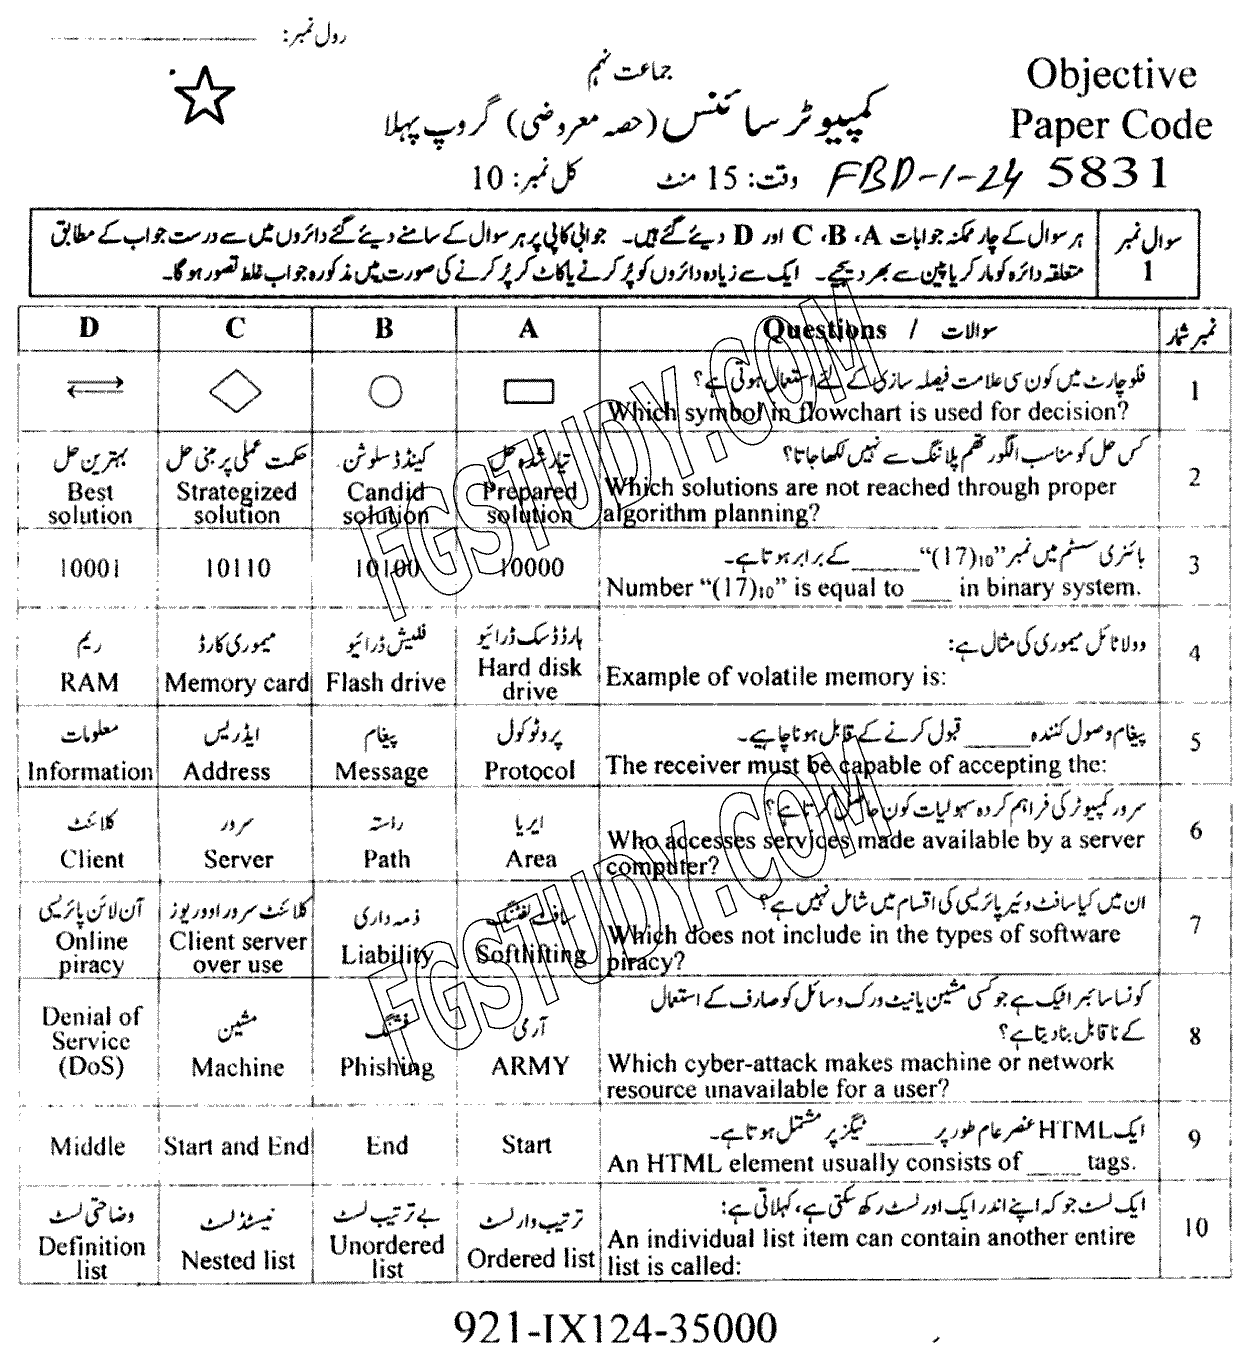 رول نمبر: ‎
جماعت نہم
Objective
Paper Code
کمپیوٹر سائنس (حصہ معروضی) گروپ پہلا
5831
FBD-1-24
وقت: 15 منٹ
کل نمبر: 10
سوال نمبر 1
ہر سوال کے چار ممکنہ جوابات A، B، C اور D دیئے گئے ہیں۔ جوابی کاپی پر ہر سوال کے سامنے دیئے گئے دائروں میں سے درست جواب کے مطابق
متعلقہ دائرہ کو مارکر یا پین سے بھر دیجیے۔ ایک سے زیادہ دائروں کو پُر کرنے یا کاٹ کر پُر کرنے کی صورت میں مذکورہ جواب غلط تصور ہوگا۔
نمبر شمار
سوالات / Questions
A
B
C
D
1
فلوچارٹ میں کون سی علامت فیصلہ سازی کے لئے استعمال ہوتی ہے؟
Which symbol in flowchart is used for decision?
2
کس حل کو مناسب الگورتھم پلاننگ سے نہیں لکھا جاتا؟
Which solutions are not reached through proper
algorithm planning?
تیار شدہ حل
Prepared
solution
کینڈڈ سلوشن
Candid
solution
حکمت عملی پر مبنی حل
Strategized
solution
بہترین حل
Best
solution
3
بائنری سسٹم میں نمبر "(17)₁₀" _____ کے برابر ہوتا ہے۔
Number “(17)₁₀” is equal to ___ in binary system.
10000
10100
10110
10001
4
وولاٹائل میموری کی مثال ہے:
Example of volatile memory is:
ہارڈ ڈسک ڈرائیو
Hard disk
drive
فلیش ڈرائیو
Flash drive
میموری کارڈ
Memory card
ریم
RAM
5
پیغام وصول کنندہ _____ قبول کرنے کے قابل ہونا چاہیے۔
The receiver must be capable of accepting the:
پروٹوکول
Protocol
پیغام
Message
ایڈریس
Address
معلومات
Information
6
سرور کمپیوٹر کی فراہم کردہ سہولیات کون حاصل کرتا ہے؟
Who accesses services made available by a server
computer?
ایریا
Area
راستہ
Path
سرور
Server
کلائنٹ
Client
7
ان میں کیا سافٹ وئیر پائریسی کی اقسام میں شامل نہیں ہے؟
Which does not include in the types of software
piracy?
سافٹ لفٹنگ
Softlifting
ذمہ داری
Liability
کلائنٹ سرور اوور یوز
Client server
over use
آن لائن پائریسی
Online
piracy
8
کونسا سائبر اٹیک ہے جو کسی مشین یا نیٹ ورک وسائل کو صارف کے استعمال
کے ناقابل بنا دیتا ہے؟
Which cyber-attack makes machine or network
resource unavailable for a user?
آرمی
ARMY
فشنگ
Phishing
مشین
Machine
Denial of
Service
(DoS)
9
ایک HTML عنصر عام طور پر _____ ٹیگز پر مشتمل ہوتا ہے۔
An HTML element usually consists of ____ tags.
Start
End
Start and End
Middle
10
ایک لسٹ جو کہ اپنے اندر ایک اور لسٹ رکھ سکتی ہے، کہلاتی ہے:
An individual list item can contain another entire
list is called:
ترتیب وار لسٹ
Ordered list
بے ترتیب لسٹ
Unordered
list
نیسٹڈ لسٹ
Nested list
وضاحتی لسٹ
Definition
list
FGSTUDY.COM
FGSTUDY.COM
921-IX124-35000